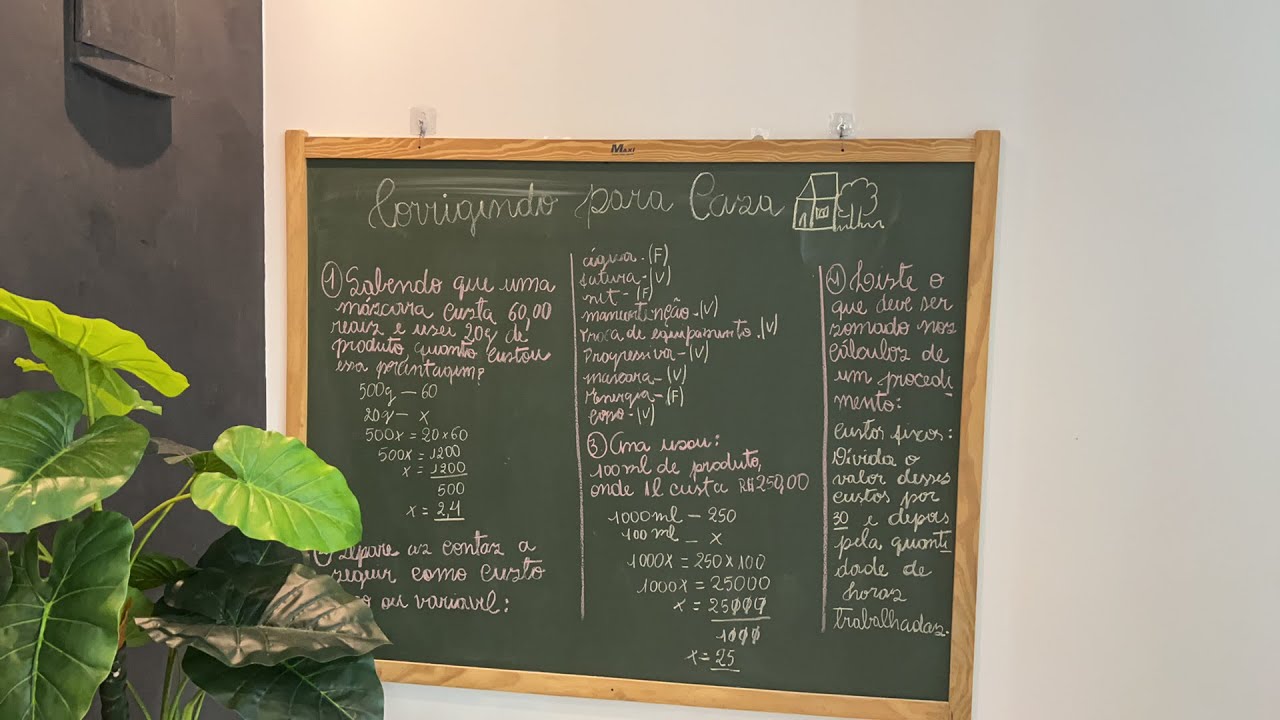 MAXI
Corrigindo para Casa
① Sabendo que uma
máscara custa 60,00
reais e usei 20g de
produto quanto custou
essa porcentagem?
500g — 60
20g — x
500x = 20x60
500x = 1200
x = 1200
500
x = 2,4
Separe as contas a
seguir como custo
ou variavel:
água - (F)
fatura - (V)
net - (F)
manuntenção - (V)
troca de equipamento - (V)
Progressiva - (V)
máscara - (V)
energia - (F)
copo - (V)
③ Ana usou:
100ml de produto,
onde 1l custa R$250,00
1000ml — 250
100ml — x
1000x = 250x100
1000x = 25000
x = 25000
1000
x = 25
④ Liste o
que deve ser
somado nos
cálculos de
um procedi
mento:
custos fixos:
Divida o
valor desses
custos por
30 e depois
pela quanti
dade de
horas
trabalhadas.